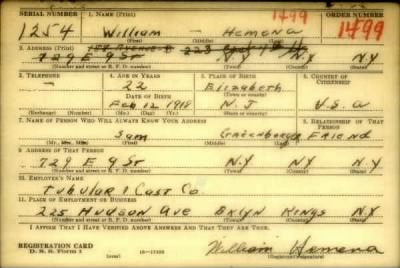 SERIAL NUMBER 1. NAME (Print) 1499 ORDER NUMBER
1254 William — Hemena 1499
(First) (Middle) (Last)
2. ADDRESS (Print) 223
729 E 9 St N.Y N.Y N.Y
(Number and street or R. F. D. number) (Town) (County) (State)
3. TELEPHONE 4. AGE IN YEARS 5. PLACE OF BIRTH 6. COUNTRY OF CITIZENSHIP
— 22 Elizabeth
DATE OF BIRTH (Town or county)
Feb 12 1918 N.J U.S.A
(Exchange) (Number) (Mo.) (Day) (Yr.) (State or country)
7. NAME OF PERSON WHO WILL ALWAYS KNOW YOUR ADDRESS 8. RELATIONSHIP OF THAT PERSON
Sam Greenberger Friend
(Mr., Mrs., Miss) (First) (Middle) (Last)
9. ADDRESS OF THAT PERSON
729 E 9 St N.Y N.Y N.Y
(Number and street or R. F. D. number) (Town) (County) (State)
10. EMPLOYER'S NAME
Tubular & Cast Co
11. PLACE OF EMPLOYMENT OR BUSINESS
225 Hudson Ave Bklyn Kings N.Y
(Number and street or R. F. D. number) (Town) (County) (State)
I AFFIRM THAT I HAVE VERIFIED ABOVE ANSWERS AND THAT THEY ARE TRUE.
REGISTRATION CARD
D. S. S. Form 1 (over) 16—17105 William Hemena
(Registrant's signature)